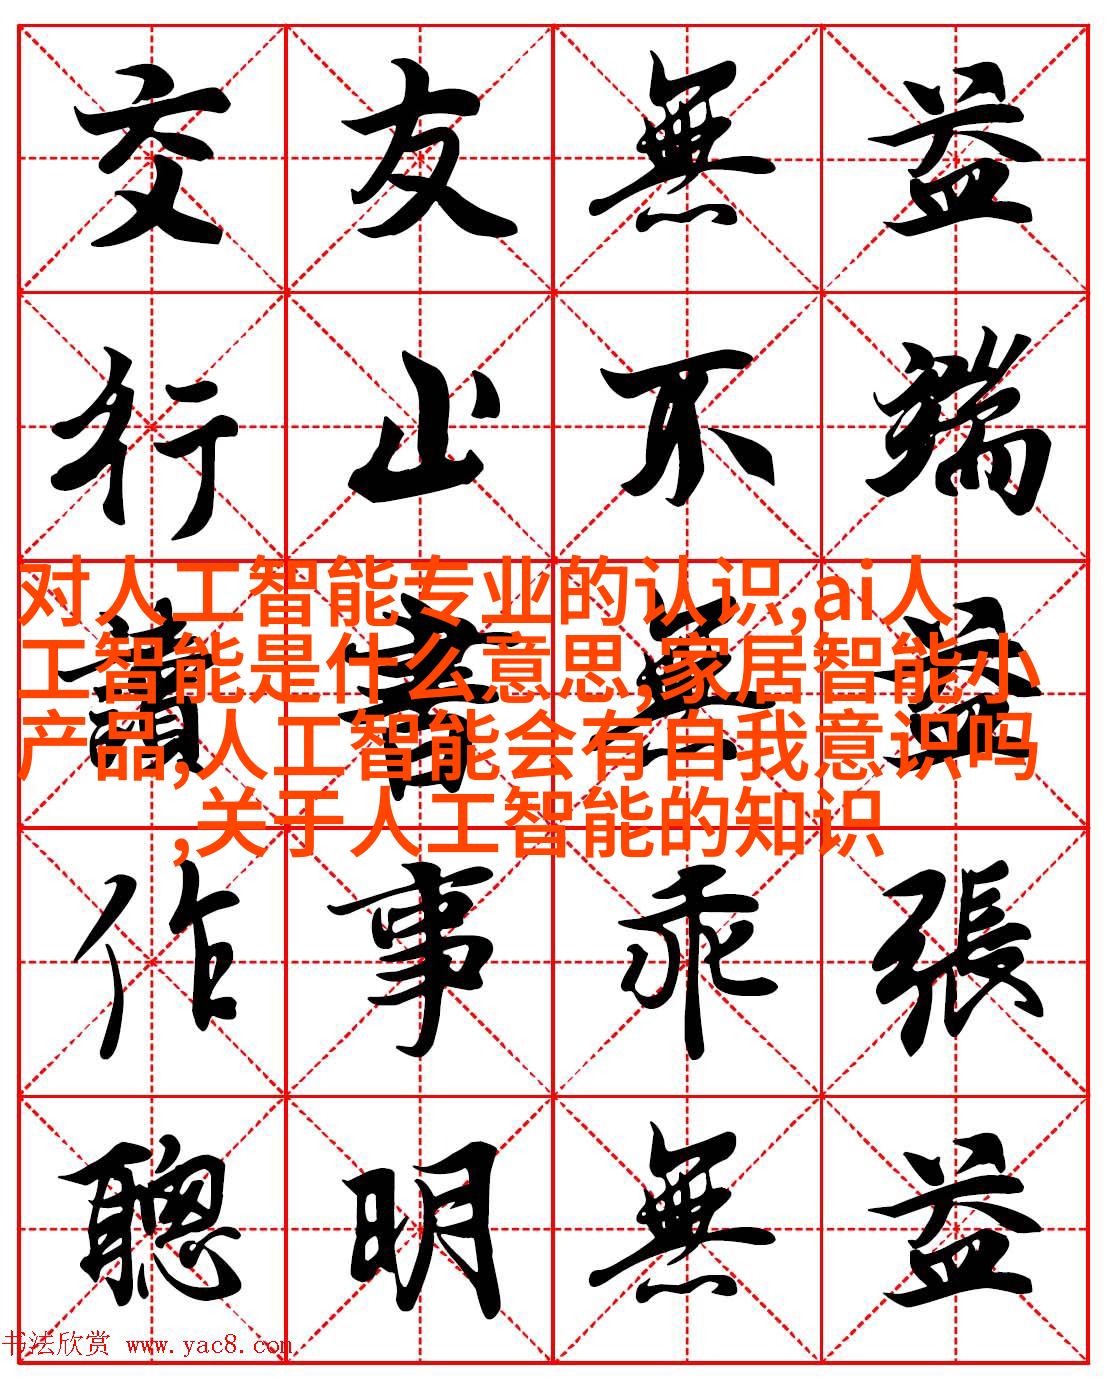 交友無益
行止不端
對人工智能专业的认识,ai人
工智能是什么意思,家居智能小
产品,人工智能会有自我意识吗
,关于人工智能的知识
讀書無益
作事乖張
聰明無益
书法欣赏 www.yac8.com